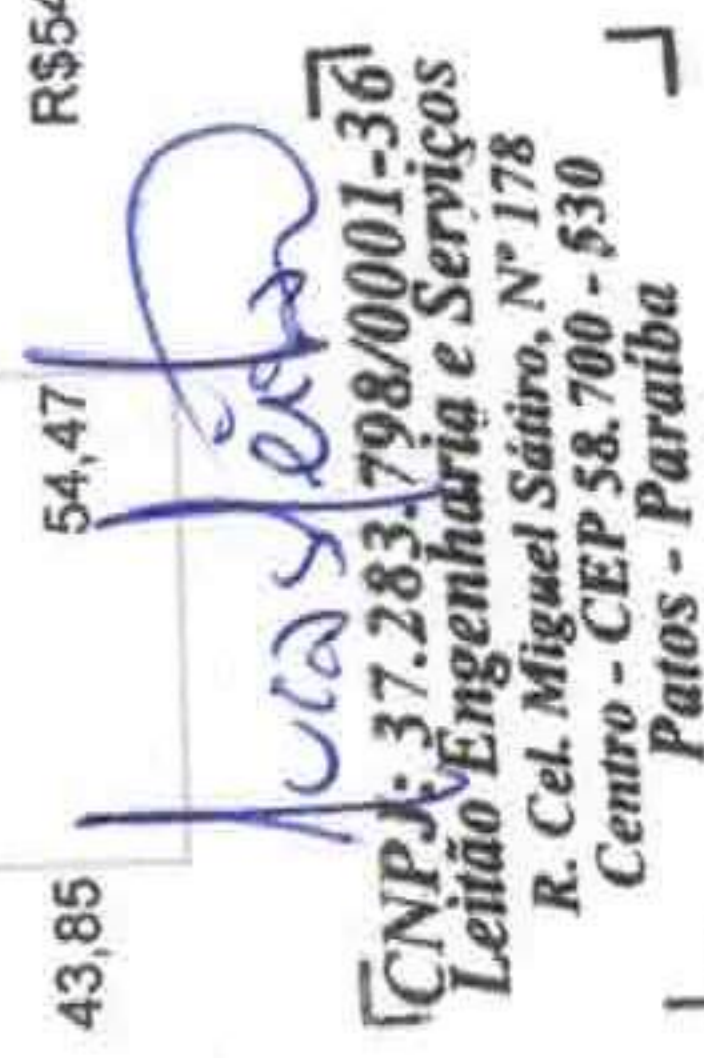 43,85 54,47 R$54
CNPJ: 37.283.798/0001-36
Leitão Engenharia e Serviços
R. Cel. Miguel Sátiro, Nº 178
Centro - CEP 58.700 - 530
Patos - Paraíba